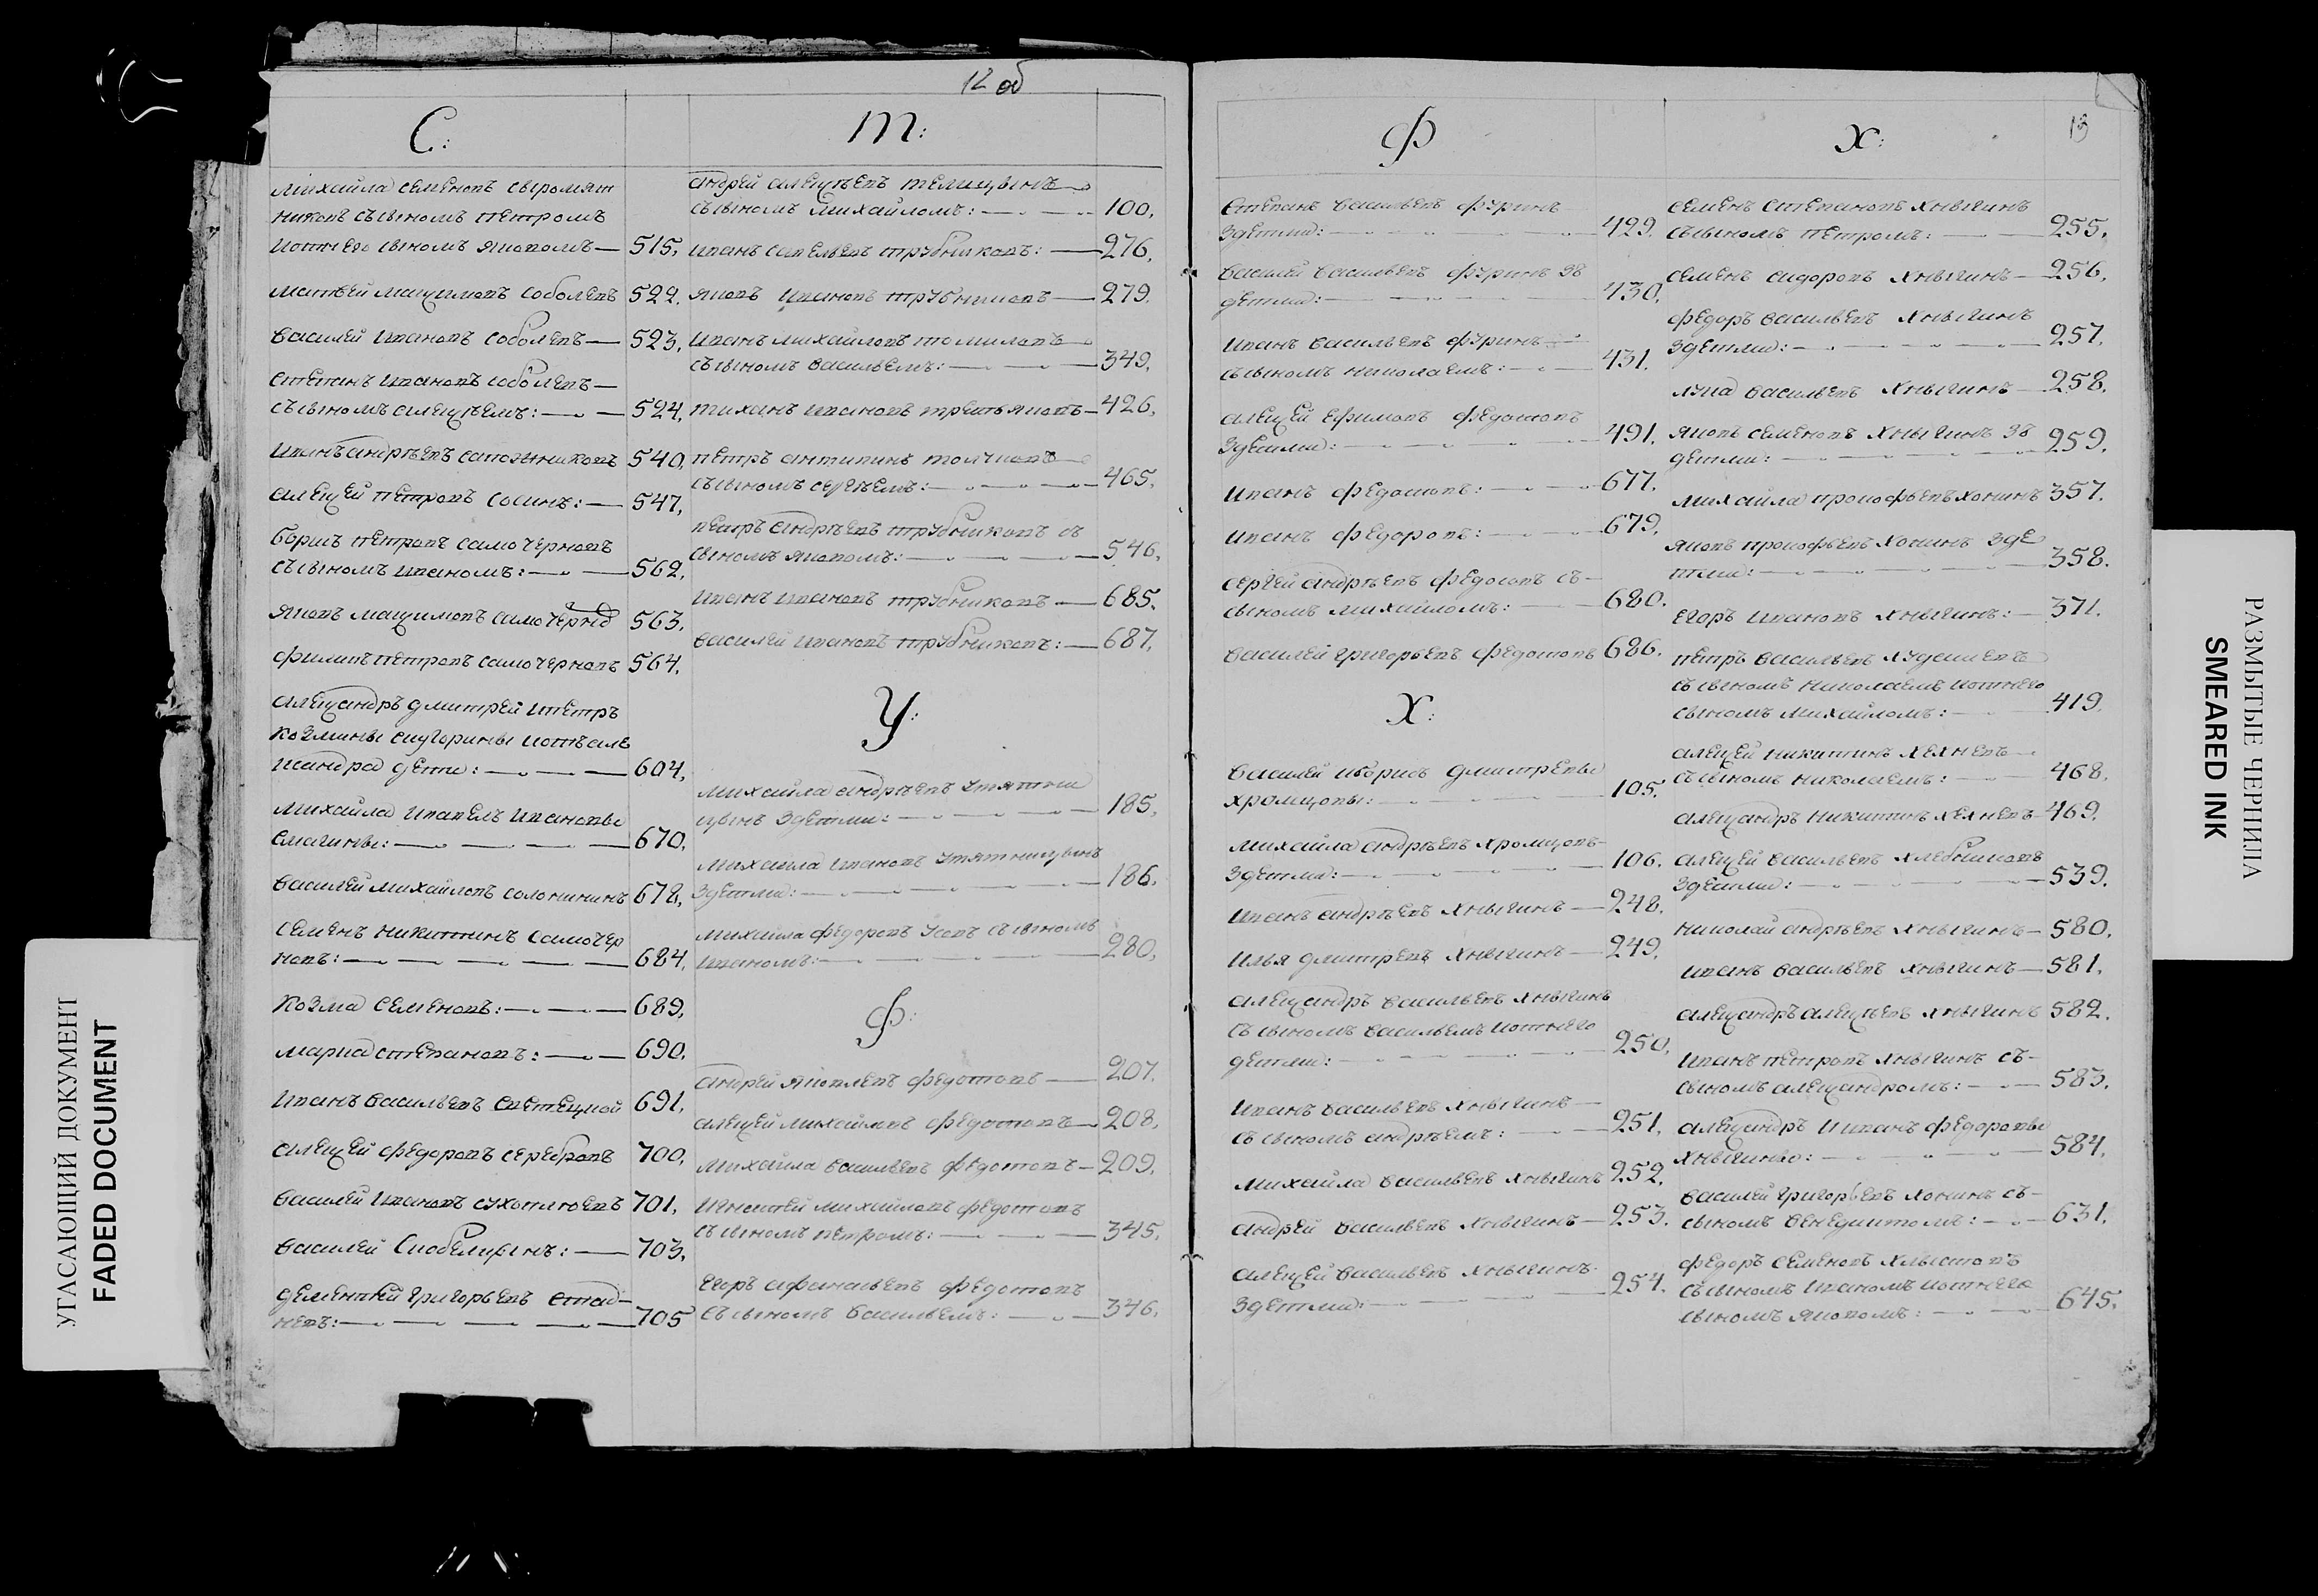 12 об
С:
Михайла Семеновъ Сыромят
никовъ съ сыномъ Петромъ
и отъ его сыномъ Яковомъ — 515.
Матвей Мацимовъ Соболевъ 522.
Василей Ивановъ Соболевъ — 523.
Степанъ Ивановъ Соболевъ —
съ сыномъ Алецѣемъ: — 524.
Иванъ Андрѣевъ Сапожниковъ 540.
Алецей Петровъ Сосинъ: — 547.
Борисъ Петровъ Самочерновъ
съ сыномъ Иваномъ: — 562.
Яковъ Мацимовъ Самочерно 563.
Филипъ Петровъ Самочерновъ 564.
Алецандръ Дмитрей и Петръ
Козмины
дети: — 604.
Михайла и Павелъ Ивановы
Смагины: — 670.
Василей Михайловъ Солонининъ 678.
Семенъ Никитинъ Самочер
новъ: — 684.
Козма Семеновъ: — 689.
Марка Степановъ: — 690.
Иванъ Васильевъ 691.
Алецей Федоровъ Серебровъ 700.
Василей Ивановъ Сухотлюевъ 701.
Василей Скобелцинъ: — 703.
Дементей Григорьевъ Стад-
невъ: — 705
Т:
Андрей Алецѣевъ Телицынъ
съ сыномъ Михайломъ: — 100.
Иванъ Савельевъ Трубниковъ: — 276.
Яковъ Ивановъ Трубниковъ — 279.
Иванъ Михайловъ Томиловъ
съ сыномъ Васильемъ: — 349.
Тиханъ Ивановъ Третьяковъ — 426.
Петръ Антипинъ Толчковъ
съ сыномъ Сергѣемъ: — 465.
Петръ Андрѣевъ Трубниковъ съ
сыномъ Яковомъ: — 546.
Иванъ Ивановъ Трубниковъ — 685.
Василей Ивановъ Трубниковъ: — 687.
У:
Михайла Андрѣевъ Утятни
цынъ здетми: — 185.
Михайла Ивановъ Утятницынъ
здетми: — 186.
Михайла Федоровъ Усовъ съ сыномъ
Иваномъ: — 280.
Ф:
Андрей Яковлевъ Федотовъ — 207.
Алецей Михайловъ Федотовъ — 208.
Михайла Васильевъ Федотовъ — 209.
Игнатей Михайловъ Федотовъ
съ сыномъ Петромъ: — 345.
Егоръ Афанасьевъ Федотовъ
съ сыномъ Васильемъ: — 346.
13
Ф
Степанъ Васильевъ Фуринъ
здетми: — 429.
Василей Васильевъ Фуринъ зъ
детми: — 430.
Иванъ Васильевъ Фуринъ
съ сыномъ Николаемъ: — 431.
Алецей Ефимовъ Федотовъ
здетми: — 491.
Иванъ Федотовъ: — 677.
Иванъ Федоровъ: — 679.
Сергей Андрѣевъ Федосовъ съ-
сыномъ Михайломъ: — 680.
Василей Григорьевъ Федотовъ 686.
Х:
Василей и Борисъ Дмитревы
Хромцовы: — 105.
Михайла Андрѣевъ Хромцовъ-
здетми: — 106.
Иванъ Андрѣевъ Хныкинъ — 248.
Илья Дмитревъ Хныкинъ — 249.
Алецандръ Васильевъ Хныкинъ
съ сыномъ Васильемъ и отъ его
детми: — 250.
Иванъ Васильевъ Хныкинъ —
съ сыномъ Андрѣемъ: — 251.
Михайла Васильевъ Хныкинъ 252.
Андрей Васильевъ Хныкинъ — 253.
Алецей Васильевъ Хныкинъ-
здетми: — 254.
Х:
Семенъ Степановъ Хныкинъ
съ сыномъ Петромъ: — 255.
Семенъ Сидоровъ Хныкинъ — 256.
Федоръ Васильевъ Хныкинъ
здетми: — 257.
Лука Васильевъ Хныкинъ — 258.
Яковъ Семеновъ Хныкинъ зъ
детми: — 259.
Михайла Прокофьевъ Хонинъ 357.
Яковъ Прокофьевъ Хонинъ зде
тми: — 358.
Егоръ Ивановъ Хныкинъ: — 371.
Петръ Васильевъ Худошевъ
съ сыномъ Николаемъ и отъ его
сыномъ Михайломъ: — 419.
Алецей Никитинъ Хехневъ
съ сыномъ Николаемъ: — 468.
Алецандръ Никитинъ Хехневъ — 469.
Алецей Васильевъ Хлебниковъ
здетми: — 539.
Николай Андрѣевъ Хныкинъ — 580.
Иванъ Васильевъ Хныкинъ — 581.
Алецандръ Алецѣевъ Хныкинъ 582.
Иванъ Петровъ Хныкинъ съ-
сыномъ Алецандромъ: — 583.
Алецандръ и Иванъ Федоровы
Хныкины: — 584.
Василей Григорьевъ Хонинъ съ-
сыномъ Венедиктомъ: — 631.
Федоръ Семеновъ Хлыстовъ
съ сыномъ Иваномъ и отъ его
сыномъ Яковомъ: — 645.
УГАСАЮЩИЙ ДОКУМЕНТ
FADED DOCUMENT
РАЗМЫТЫЕ ЧЕРНИЛА
SMEARED INK